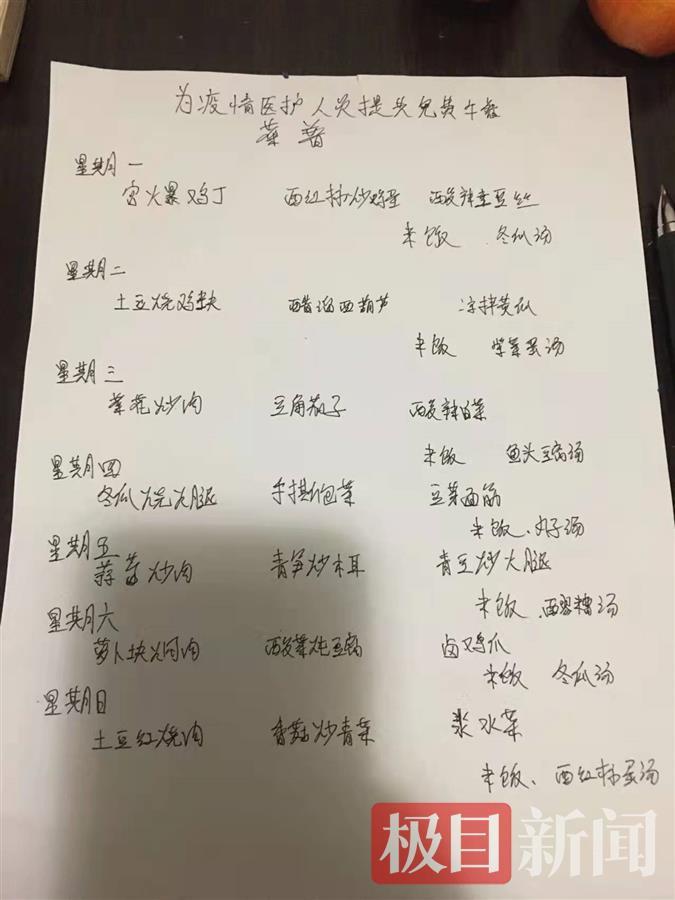 为疫情医护人员提供免费午餐
菜普
星期一
宫火暴鸡丁 西红柿炒鸡蛋 酸辣土豆丝
米饭 冬瓜汤
星期二
土豆烧鸡块 醋溜西葫芦 凉拌黄瓜
米饭 紫菜蛋汤
星期三
菜花炒肉 豆角茄子 酸辣白菜
米饭 鱼头豆腐汤
星期四
冬瓜烧火腿 手撕包菜 豆菜面筋
米饭、丸子汤
星期五
蒜苔炒肉 青笋炒木耳 青豆炒火腿
米饭、醪糟汤
星期六
萝卜块焖肉 酸菜炖豆腐 卤鸡爪
米饭 冬瓜汤
星期日
土豆红烧肉 香菇炒青菜 浆水菜
米饭、西红柿蛋汤
极目新闻